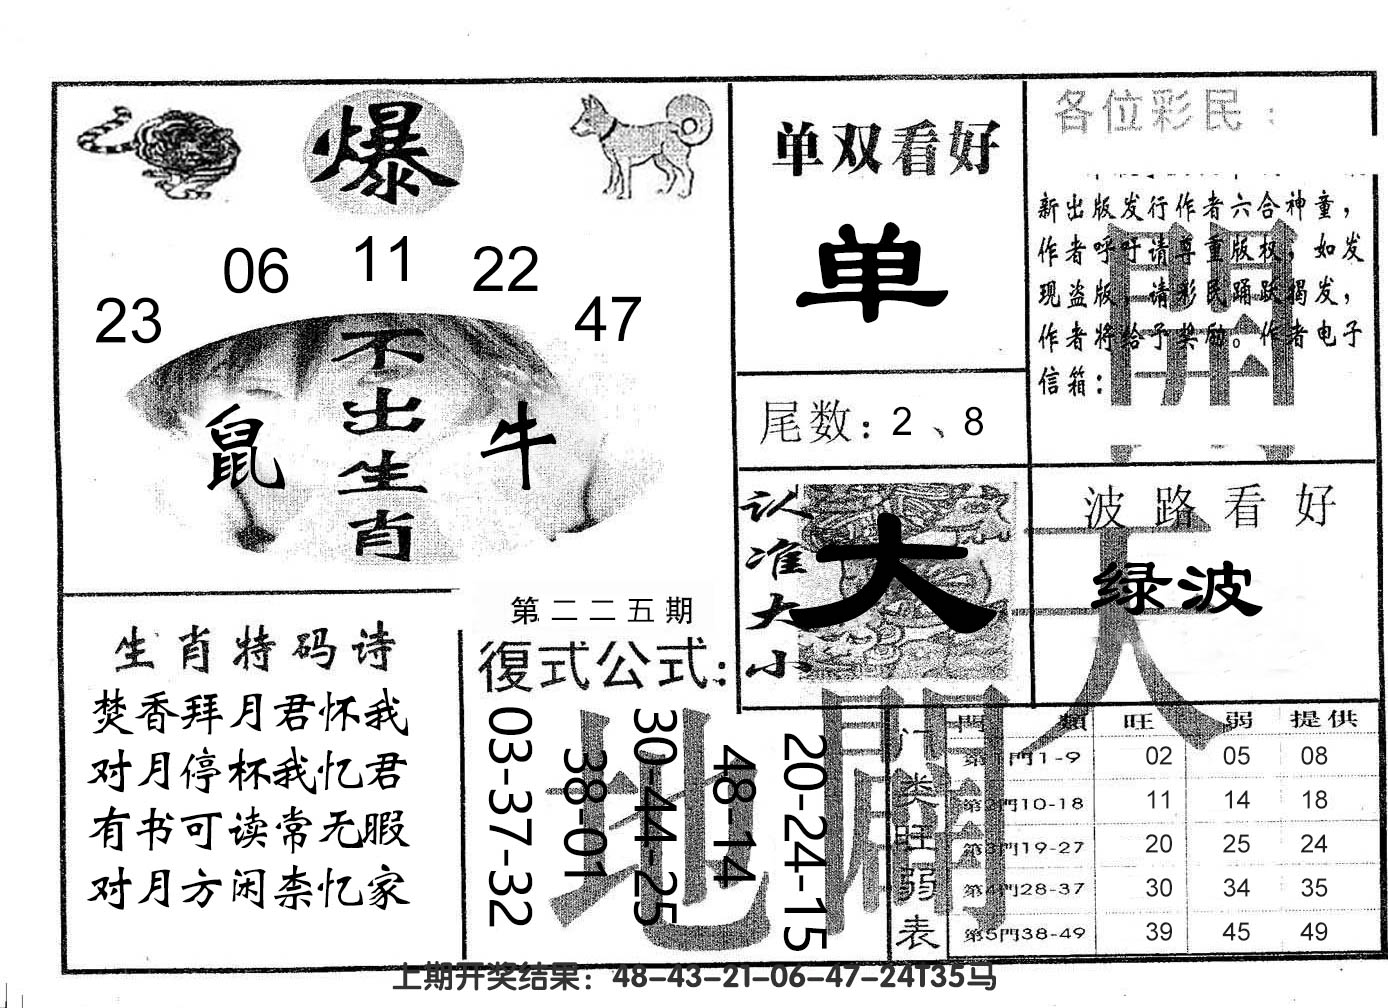 爆
23 06 11 22 47
不出生肖
鼠 牛
单双看好
单
尾数：2、8
认准大小
大
各位彩民：
新出版发行作者六合神童，
作者呼吁请尊重版权，如发
现盗版，请彩民踊跃揭发，
作者将给予奖励。作者电子
信箱：
開
天
波路看好
绿波
生肖特码诗
焚香拜月君怀我
对月停杯我忆君
有书可读常无暇
对月方闲柰忆家
第二二五期
復式公式：
03-37-32
38-01
30-44-25
48-14
20-24-15
地 闢
门类旺弱表
門 類 旺 弱 提供
第1門1-9 02 05 08
第2門10-18 11 14 18
第3門19-27 20 25 24
第4門28-37 30 34 35
第5門38-49 39 45 49
上期开奖结果：48-43-21-06-47-24T35马